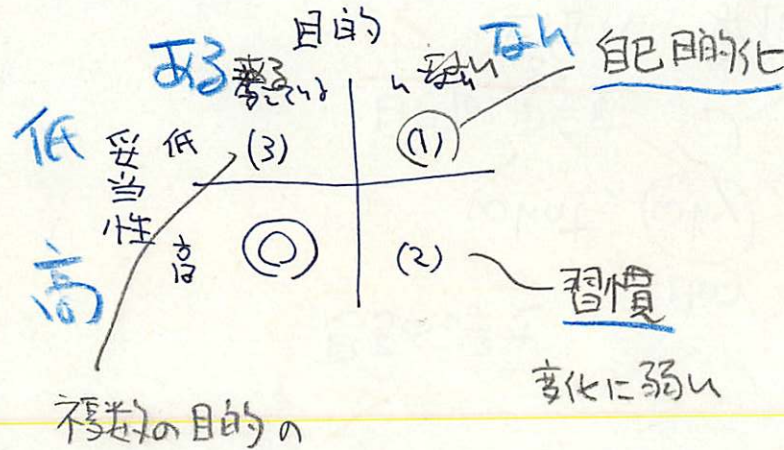 目的
ある ない 自己目的化
低 妥当性 低 (3) (1)
高 高 ◎ (2)
習慣
変化に弱い
複数の目的の